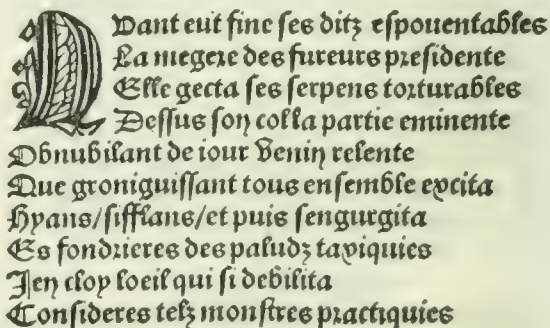 Quant eut fine ses ditz espouentables
La megere des fureurs presidente
Elle gecta ses serpens torturables
Dessus son col la partie eminente
Obnubilant de iour Venin relente
Que groniguissant tous ensemble excita
Hyans/sifflans/et puis sengurgita
Es fondrieres des paludz tapiquies
Jen clop loeil qui si debilita
Consideres telz monstres practiquies